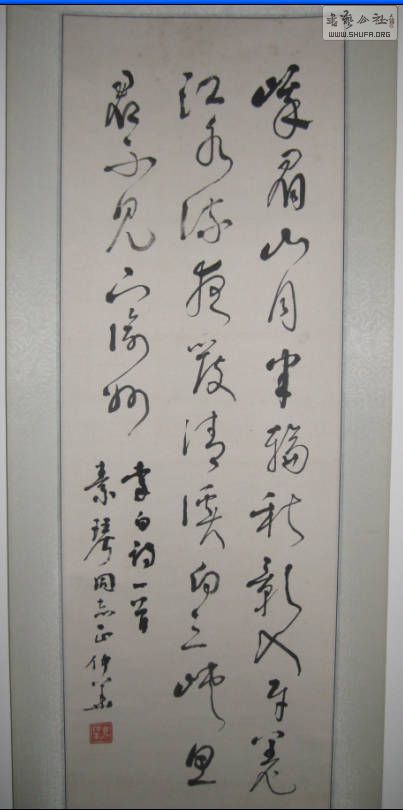 書藝公社
WWW.SHUFA.ORG
峨眉山月半輪秋影入平羌
江水流夜發清溪向三峽思
君不見下渝州
李白詩一首
素琴同志正 仲